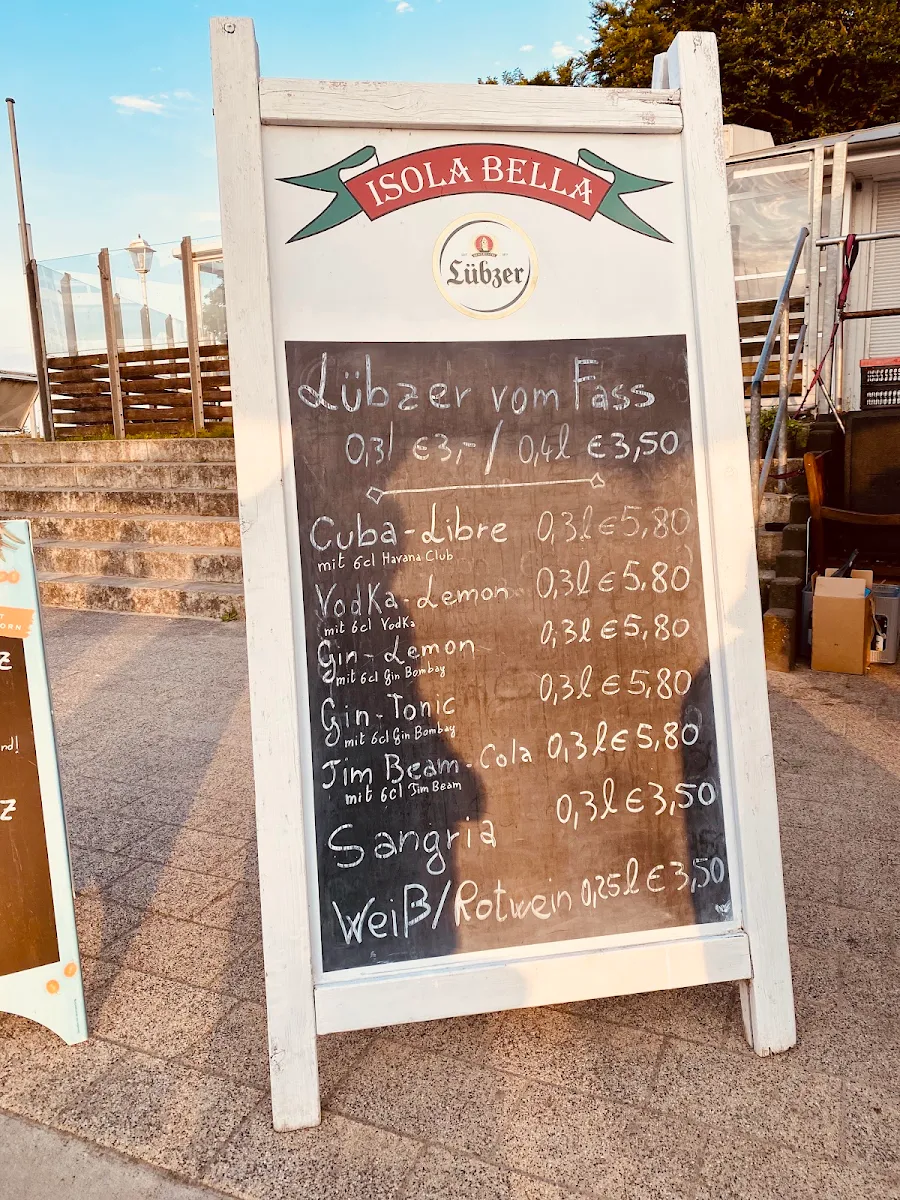 ISOLA BELLA
Lübzer
Lübzer vom Fass
0,3l €3,- / 0,4l €3,50
Cuba-Libre 0,3l €5,80
mit 6cl Havana Club
Vodka-Lemon 0,3l €5,80
mit 6cl Vodka
Gin-Lemon 0,3l €5,80
mit 6cl Gin Bombay
Gin-Tonic 0,3l €5,80
mit 6cl Gin Bombay
Jim Beam-Cola 0,3l €5,80
mit 6cl Jim Beam
Sangria 0,3l €3,50
Weiß/Rotwein 0,25l €3,50
ORN
Z
nd!
Z